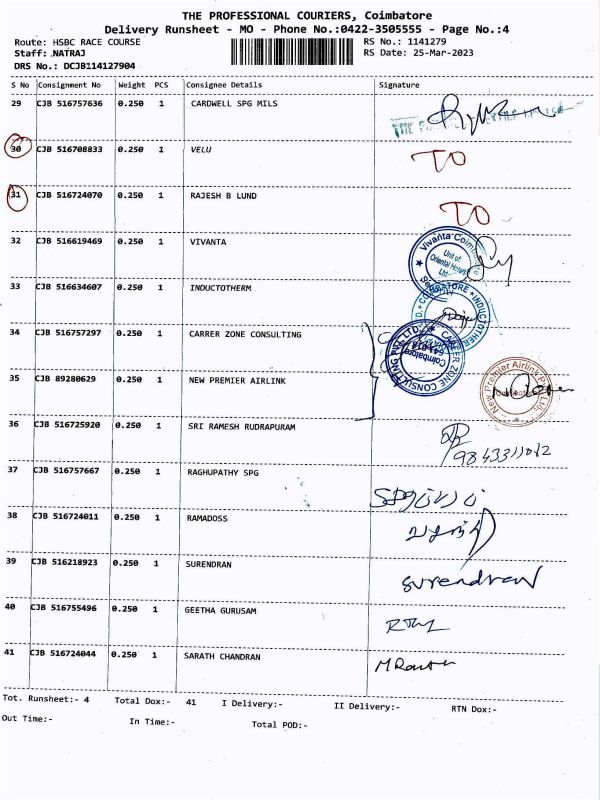 THE PROFESSIONAL COURIERS, Coimbatore
Delivery Runsheet - MO - Phone No.:0422-3505555 - Page No.:4
Route: HSBC RACE COURSE RS No.: 1141279
Staff: .NATRAJ RS Date: 25-Mar-2023
DRS No.: DCJB114127904
S No Consignment No Weight PCS Consignee Details Signature
29 CJB 516757636 0.250 1 CARDWELL SPG MILS
30 CJB 516708833 0.250 1 VELU TO
31 CJB 516724070 0.250 1 RAJESH B LUND TO
32 CJB 516619469 0.250 1 VIVANTA
Vivanta Coimbatore
Unit of
Oriental Hotels
Ltd.
33 CJB 516634607 0.250 1 INDUCTOTHERM
34 CJB 516757297 0.250 1 CARRER ZONE CONSULTING
CAREER ZONE CONSULTING PVT. LTD.
Coimbatore
35 CJB 89280629 0.250 1 NEW PREMIER AIRLINK
New Premier Airlink Pvt. Ltd.
36 CJB 516725920 0.250 1 SRI RAMESH RUDRAPURAM
37 CJB 516757667 0.250 1 RAGHUPATHY SPG
38 CJB 516724011 0.250 1 RAMADOSS
39 CJB 516218923 0.250 1 SURENDRAN surendran
40 CJB 516755496 0.250 1 GEETHA GURUSAM
41 CJB 516724044 0.250 1 SARATH CHANDRAN
Tot. Runsheet:- 4 Total Dox:- 41 I Delivery:- II Delivery:- RTN Dox:-
Out Time:- In Time:- Total POD:-